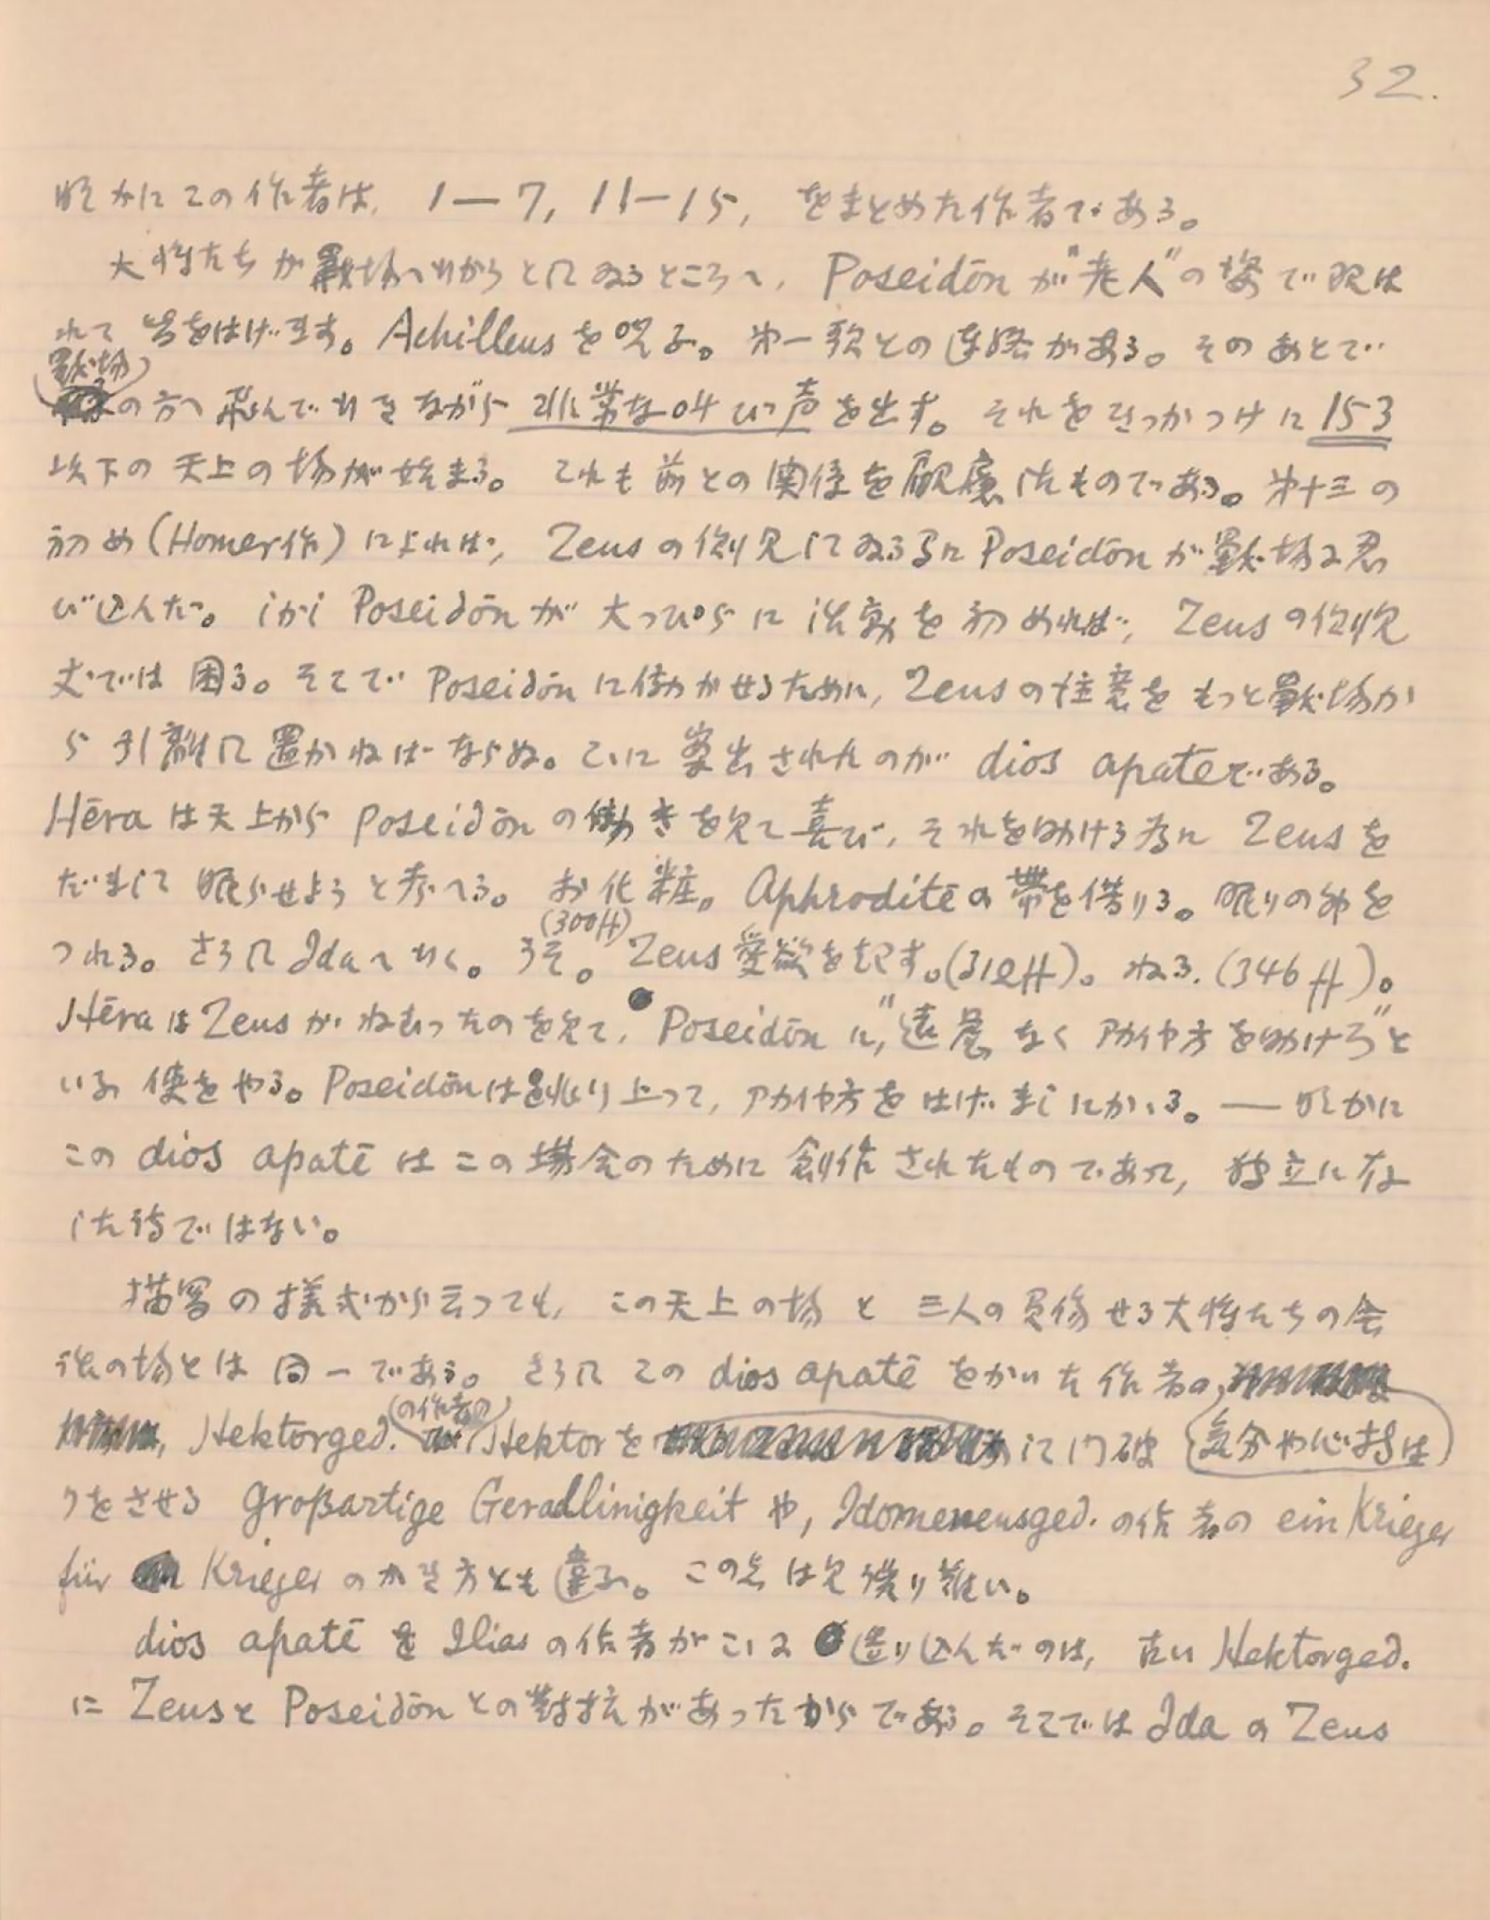 32.
明かにこの作者は、1—7, 11—15, をまとめた作者である。
大将たちが戰場へ行かうとしてゐるところへ、Poseidōnが"老人"の姿で現は
れて皆をはげます。Achilleusを呪ふ。第一歌との連絡がある。そのあとで
戰場の方へ飛んで行きながら非常な叫び声を出す。それをきっかけに153
以下の天上の場が始まる。これも前との関係を顧慮したものである。第十三の
初め(Homer作)によれば、Zeusの側見してゐる間にPoseidōnが戰場に忍
び込んだ。しかしPoseidōnが大っぴらに活動を初めれば、Zeusの側見
丈では困る。そこでPoseidōnに働かせるために、Zeusの注意をもっと戰場か
ら引離して置かねばならぬ。こゝに案出されたのがdios apatēである。
Hēraは天上からPoseidōnの働きを見て喜び、それを助ける為にZeusを
だまして眠らせようと考へる。お化粧。Aphroditēの帶を借りる。眠りの神を
つれる。さうしてIdaへ行く。うそ。(300ff) Zeus愛欲を起す。(312ff)。ねる.(346ff)。
HēraはZeusがねむったのを見て、Poseidōnに,"遠慮なくアカイヤ方を助けろ"と
いふ使をやる。Poseidōnは躍り上って、アカイヤ方をはげましにかゝる。——明かに
このdios apatēはこの場合のために創作されたものであって、独立に存
した詩ではない。
描写の様式から云っても、この天上の場と三人の負傷せる大将たちの会
談の場とは同一である。さうしてこのdios apatēをかいた作者の気分や心持は
, Hektorged.の作者のHektorをして門破
りをさせるgroßartige Geradlinigkeitや, Idomeneusged.の作者のein Krieger
für Kriegerのかき方とも違ふ。この点は見誤り難い。
dios apatēをIliasの作者がこゝに造り込んだのは, 古いHektorged.
にZeusとPoseidōnとの對抗があったからである。そこではIdaのZeus